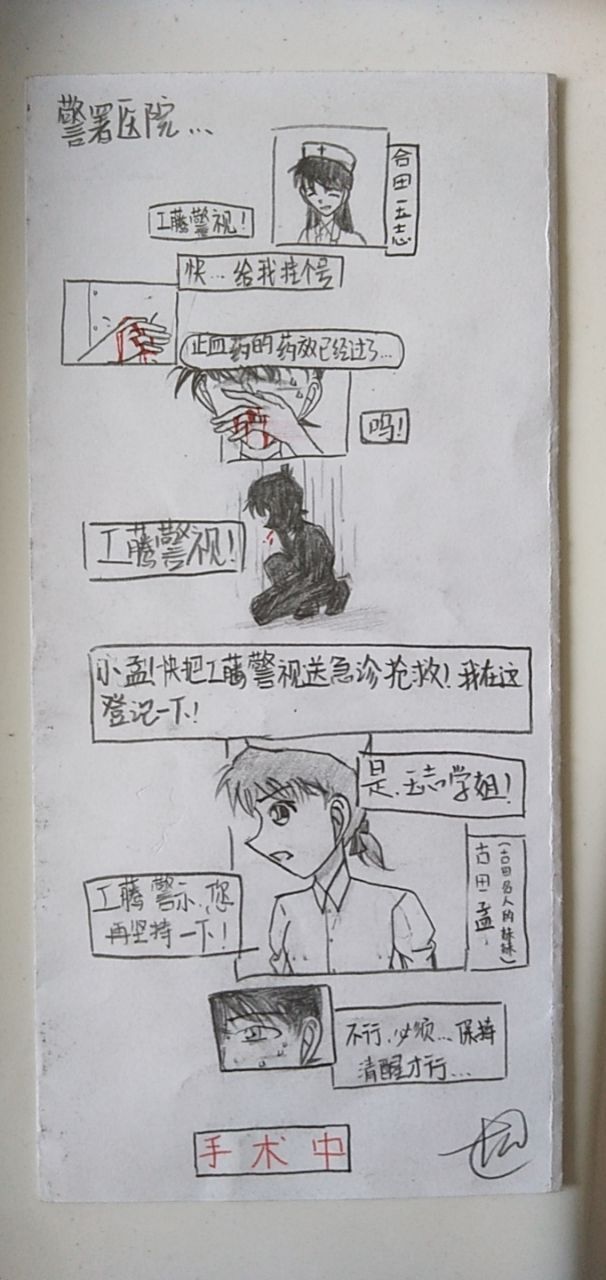 警署医院...
合田玉志
工藤警视!
快...给我挂个号
止血药的药效已经过了...
呜!
工藤警视!
小孟!快把工藤警视送急诊抢救!我在这
登记一下!
是、玉志学姐!
古田孟
(古田名人的妹妹)
工藤警示、您
再坚持一下!
不行、必须...保持
清醒才行...
手术中